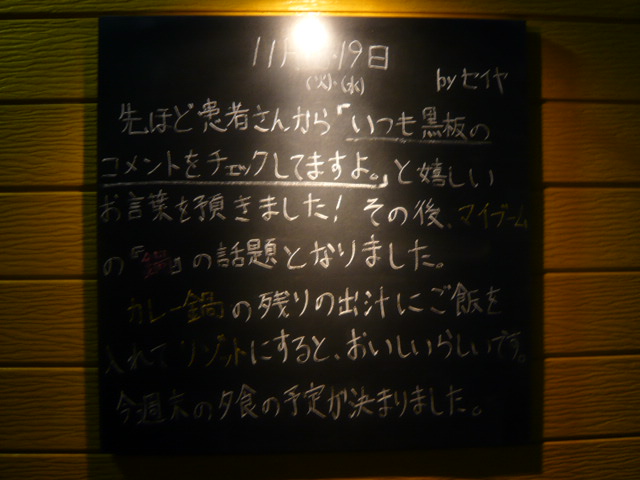 11月 19日
(火)・(水) by セイヤ
先ほど患者さんから「いつも黒板の
コメントをチェックしてますよ。」と嬉しい
お言葉を預きました! その後、マイブーム
の『鍋』の話題となりました。
カレー鍋の残りの出汁にご飯を
入れてリゾットにすると、おいしいらしいです。
今週末の夕食の予定が決まりました。